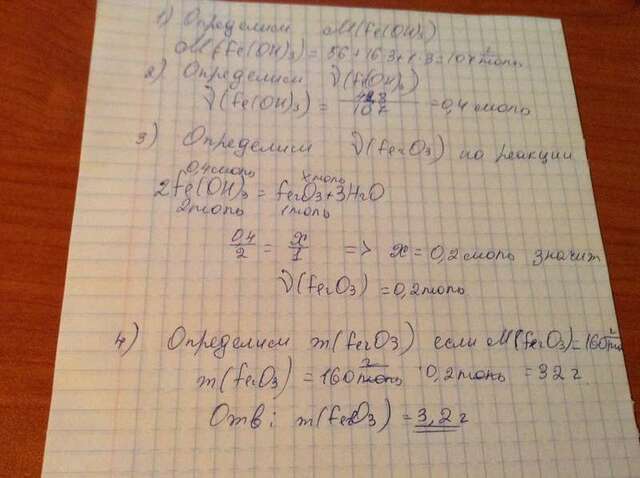 1) Определим M(Fe(OH)3)
M(Fe(OH)3) = 56+16·3+1·3=107 г/моль
2) Определим ν(Fe(OH)3)
ν(Fe(OH)3) = 42,8/107 = 0,4 моль
3) Определим ν(Fe2O3) по реакции
0,4моль х моль
2Fe(OH)3 = Fe2O3+3H2O
2моль 1моль
0,4/2 = x/1 => x = 0,2 моль значит
ν(Fe2O3) = 0,2моль
4) Определим m(Fe2O3) если M(Fe2O3)=160 г/моль
m(Fe2O3) = 160 г/моль · 0,2моль = 32 г.
Отв: m(Fe2O3) = 3,2 г